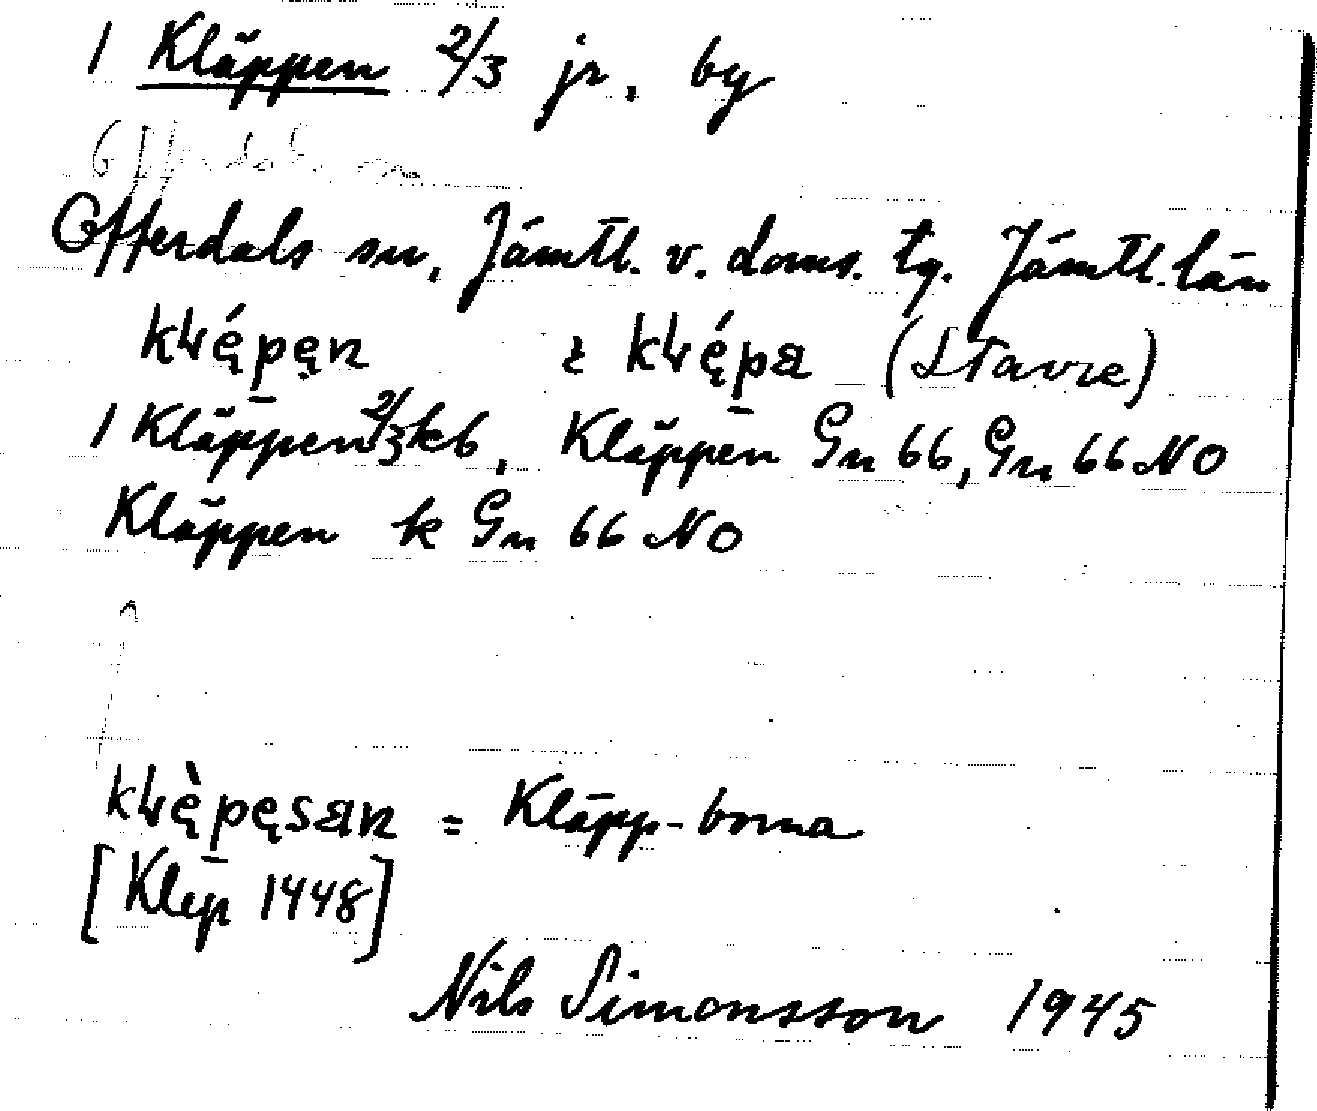 1 Kläppen 2/3 jr. by
Offerdals sn
Offerdals sn, Jämtl. v. doms. tg. Jämtl. län
kƚé̜pe̜n ɛ kƚé̜pa (Stavre)
1 Kläppen 2/3 kb, Kläppen Gn 66, Gn 66 NO
Kläppen k Gn 66 NO
kƚè̜pe̜san = Kläpp-borna
[Klep 1448]
Nils Simonsson 1945